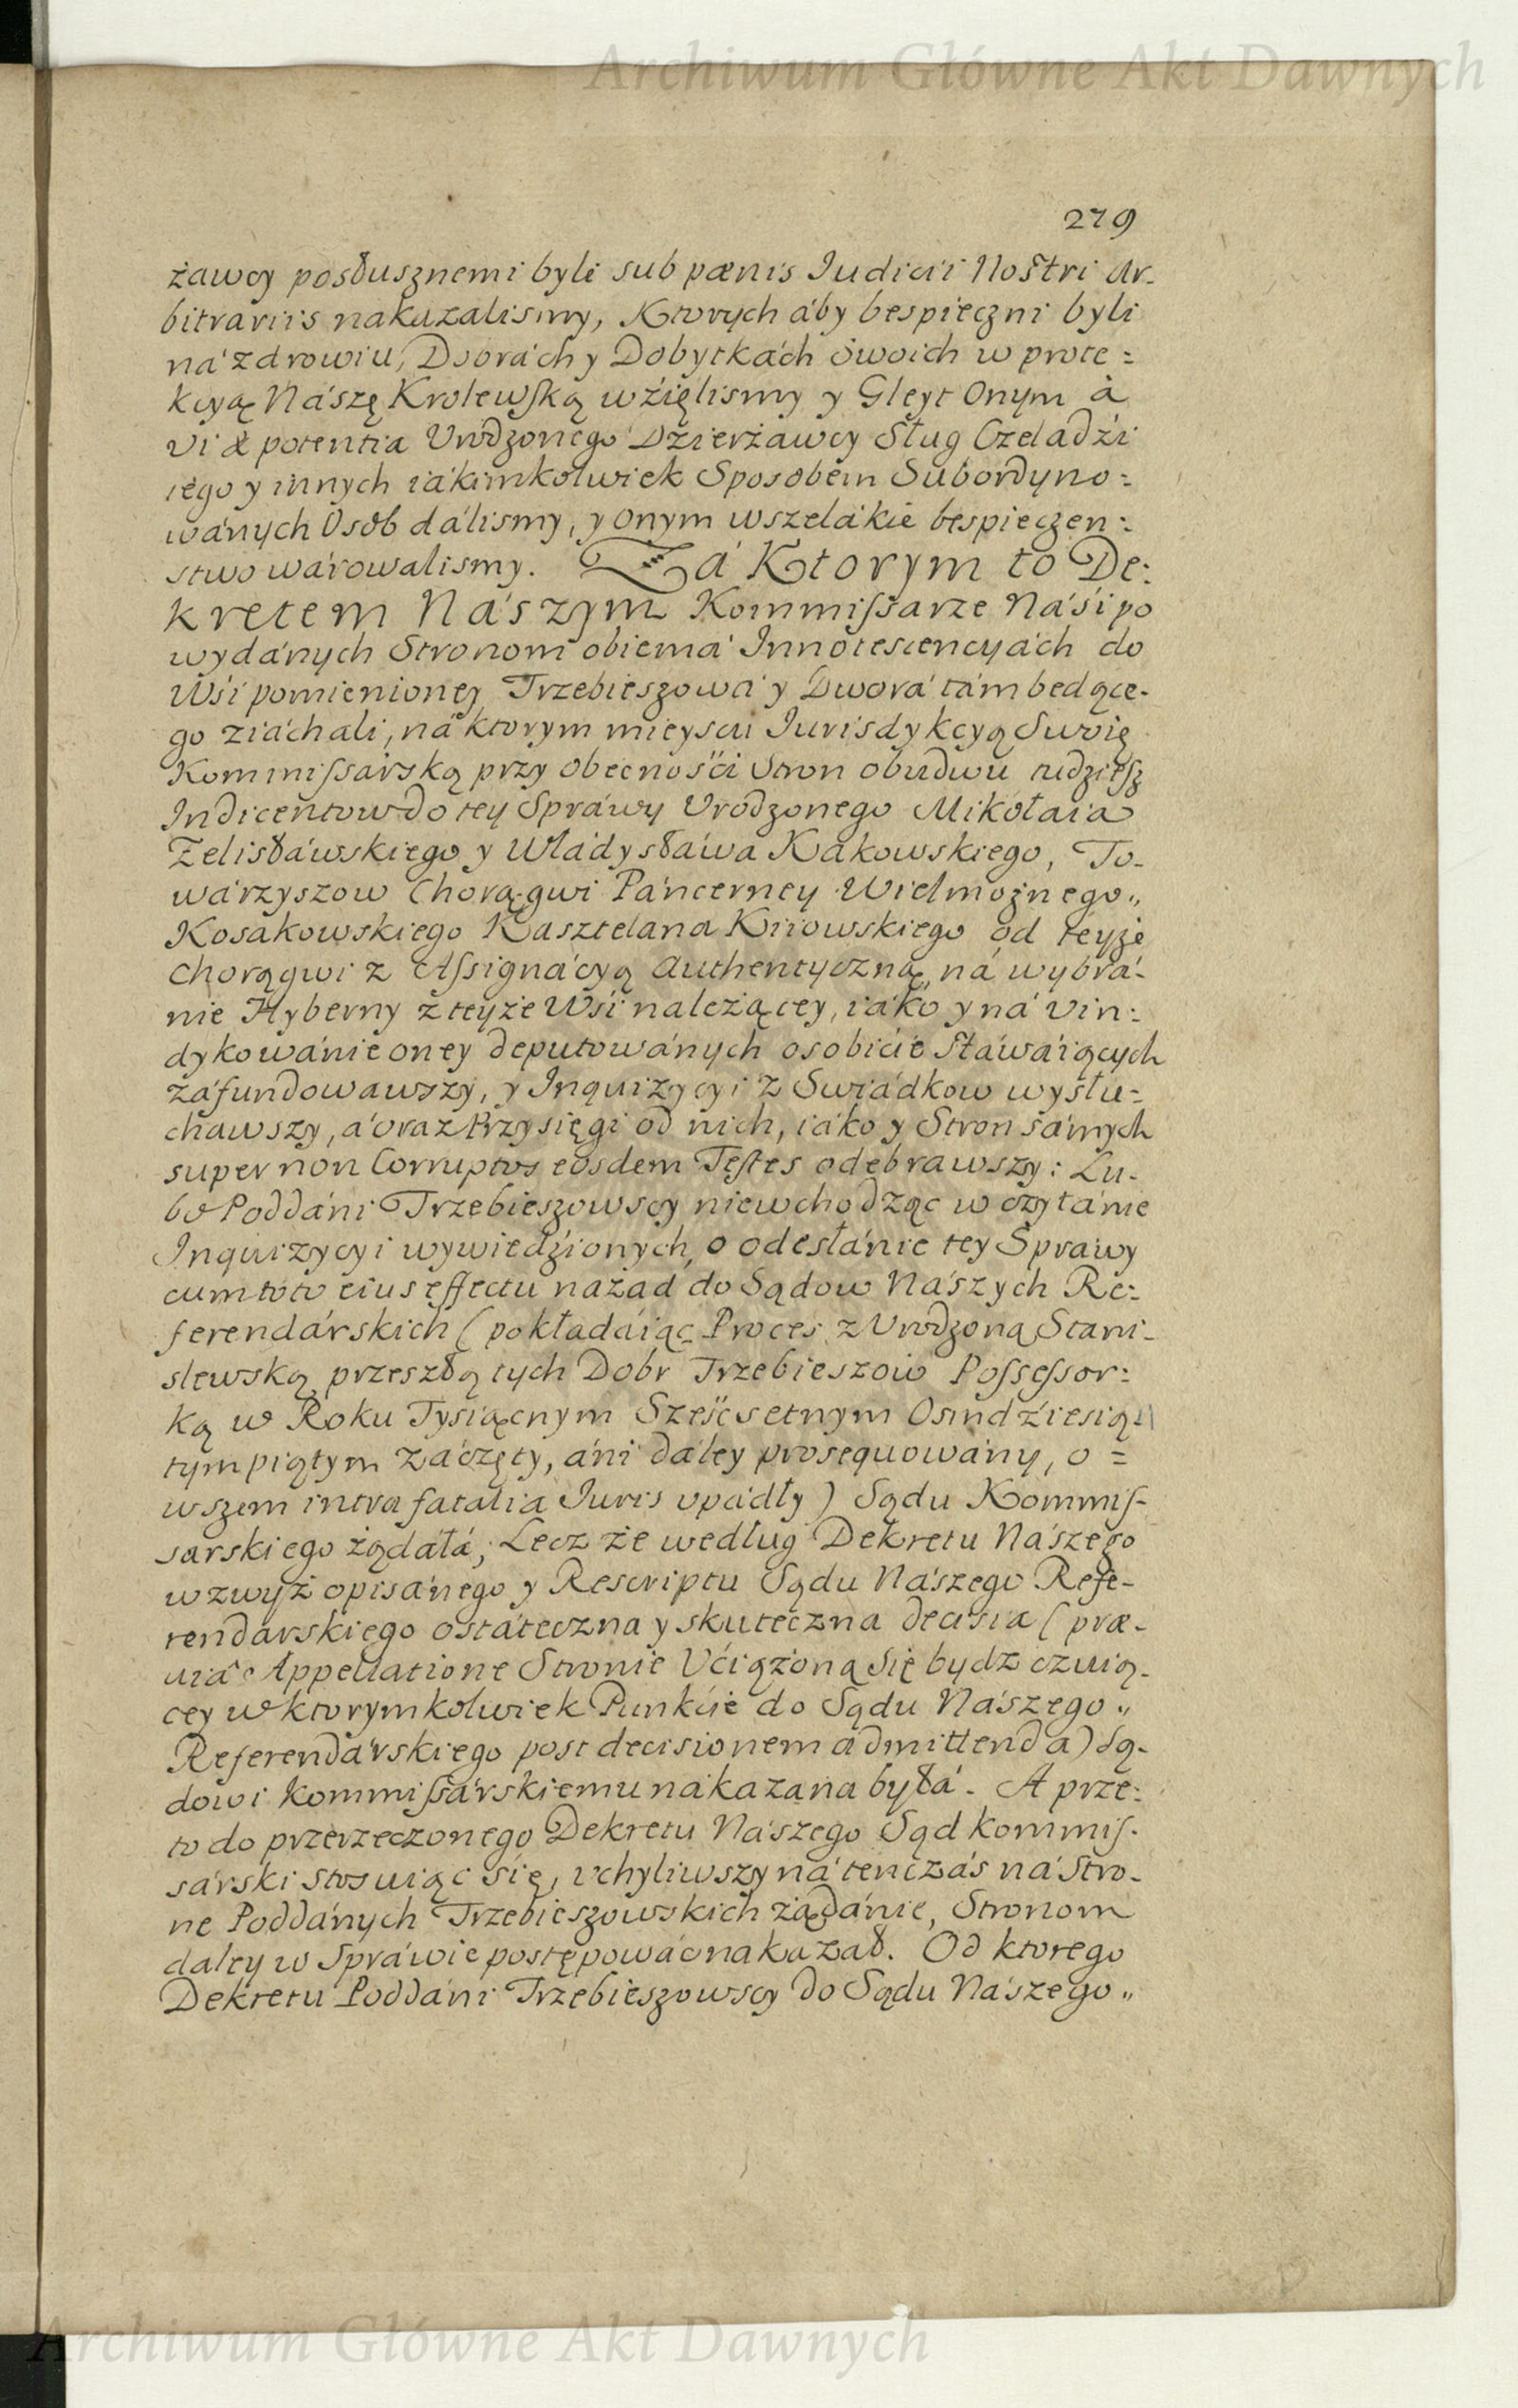 Archiwum Główne Akt Dawnych
279
żawcy posłusznemi byli sub pœnis Iudicii Nostri Ar-
bitrariis nakazalismy, Ktorych áby bespieczni byli
ná zdrowiu, Dobrách y Dobytkách swoich w prote=
kcyą Nászę Krolewską wźięlismy y Gleyt Onym à
vi & potentia Vrodzonego Dzierżawcy Sług Czeladźi
iego y innych iákimkolwiek Sposobem Subordyno=
wánych Osob dálismy, y onym wszelákie bespieczen=
stwo wárowalismy. Zá Ktorym to De=
kretem Nászym Kommissarze Náśi po
wydánych Stronom obiemá Innotescencyách do
Wśi pomienioney Trzebieszowá y Dworá tám będące-
go ziácháli, ná ktorym mieyscu Iurisdykcyą Swoię
Kommissárską przy obecnośći Stron obudwu tudziesz
Indicentow do tey Spráwy Vrodzonego Mikołaia
Zelisłáwskiego y Władysłáwa Kakowskiego, To-
wárzyszow Chorągwi Páncerney Wielmożnego"
Kosakowskiego Kasztelana Kiiowskiego od teyże
Chorągwi z Assignácyą Authentyczną, ná wybrá-
nie Hyberny z teyże Wśi należącey, iáko y ná vin=
dykowánie oney deputowánych osobiśćie stáwáiących
záfundowawszy, y Inquizycyi z Swiádkow wysłu=
chawszy, á oraz Przysięgi od nich, iáko y Stron sámych
super non Corruptos eosdem Testes odebrawszy: Lu-
bo Poddáni Trzebieszowscy niewchodząc w czytánie
Inquizycyi wywiedźionych, o odesłánie tey Spráwy
cum toto eius effectu názad do Sądow Nászych Re=
ferendárskich (pokłádáiąc Proces z Vrodzoną Stani-
slewską przeszłą tych Dobr Trzebieszow Possessor=
ką w Roku Tysiącnym Sześćsetnym Osmdźiesią-
tym piątym záczęty, áni dáley prosequowány, o=
wszem intra fatalia Iuris vpádły) Sądu Kommis-
sarskiego żądáłá; Lecz że według Dekretu Nászego
wzwyż opisánego y Rescriptu Sądu Nászego Refe-
rendárskiego ostáteczna y skuteczna decisia (præ-
uia Appellatione Stronie Vćiążoną się bydz czuią-
cey w ktorymkolwiek Punkćie do Sądu Nászego"
Referendárskiego post decisionem ádmittenda) Są-
dowi Kommissárskiemu nákazana byłá. A prze=
to do przerzeczonego Dekretu Nászego Sąd Kommis-
sárski stosuiąc się, vchyliwszy ná tenczás ná Stro-
ne Poddánych Trzebieszowskich żądánie, Stronom
daley w Spráwie postępowáć nakazał. Od ktorego
Dekretu Poddáni Trzebieszowscy do Sądu Nászego"
Archiwum Główne Akt Dawnych